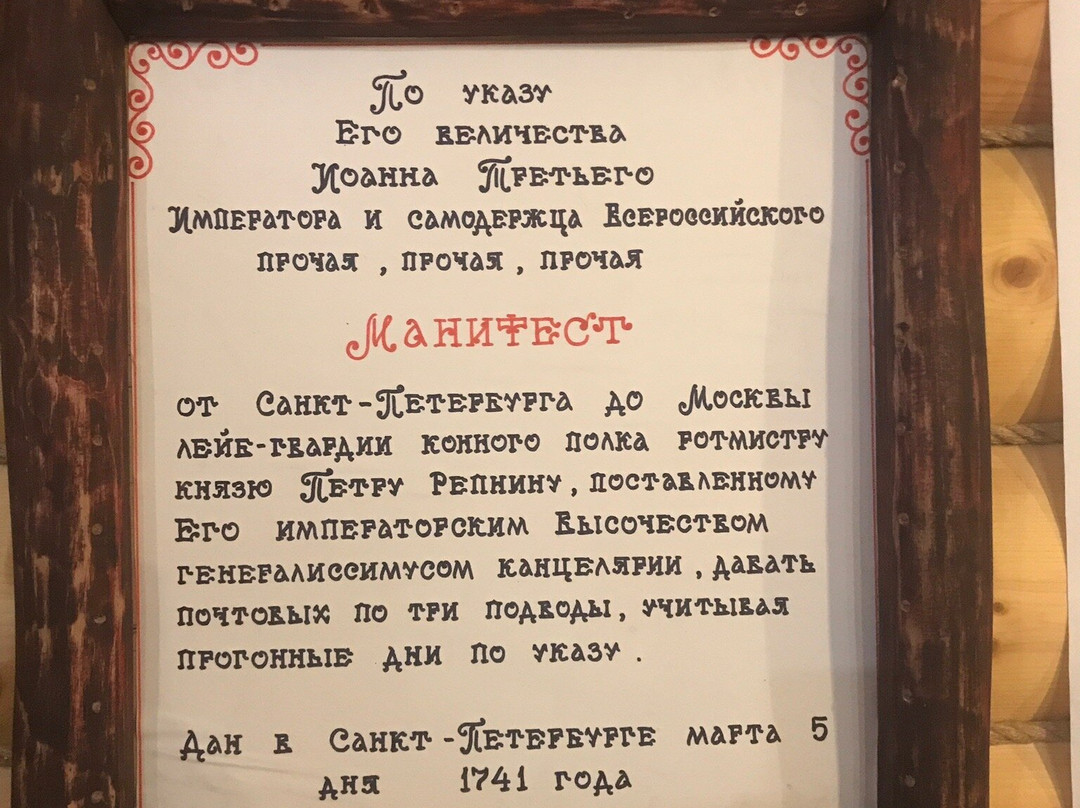 По указу
Его величества
Иоанна Третьего
Императора и самодержца Всероссийского
прочая , прочая , прочая
Манифест
от Санкт-Петербурга до Москвы
лейб-гвардии конного полка ротмистру
князю Петру Репнину, поставленному
Его императорским Высочеством
генералиссимусом канцелярии , давать
почтовых по три подводы, учитывая
прогонные дни по указу .
Дан в Санкт-Петербурге марта 5
дня 1741 года